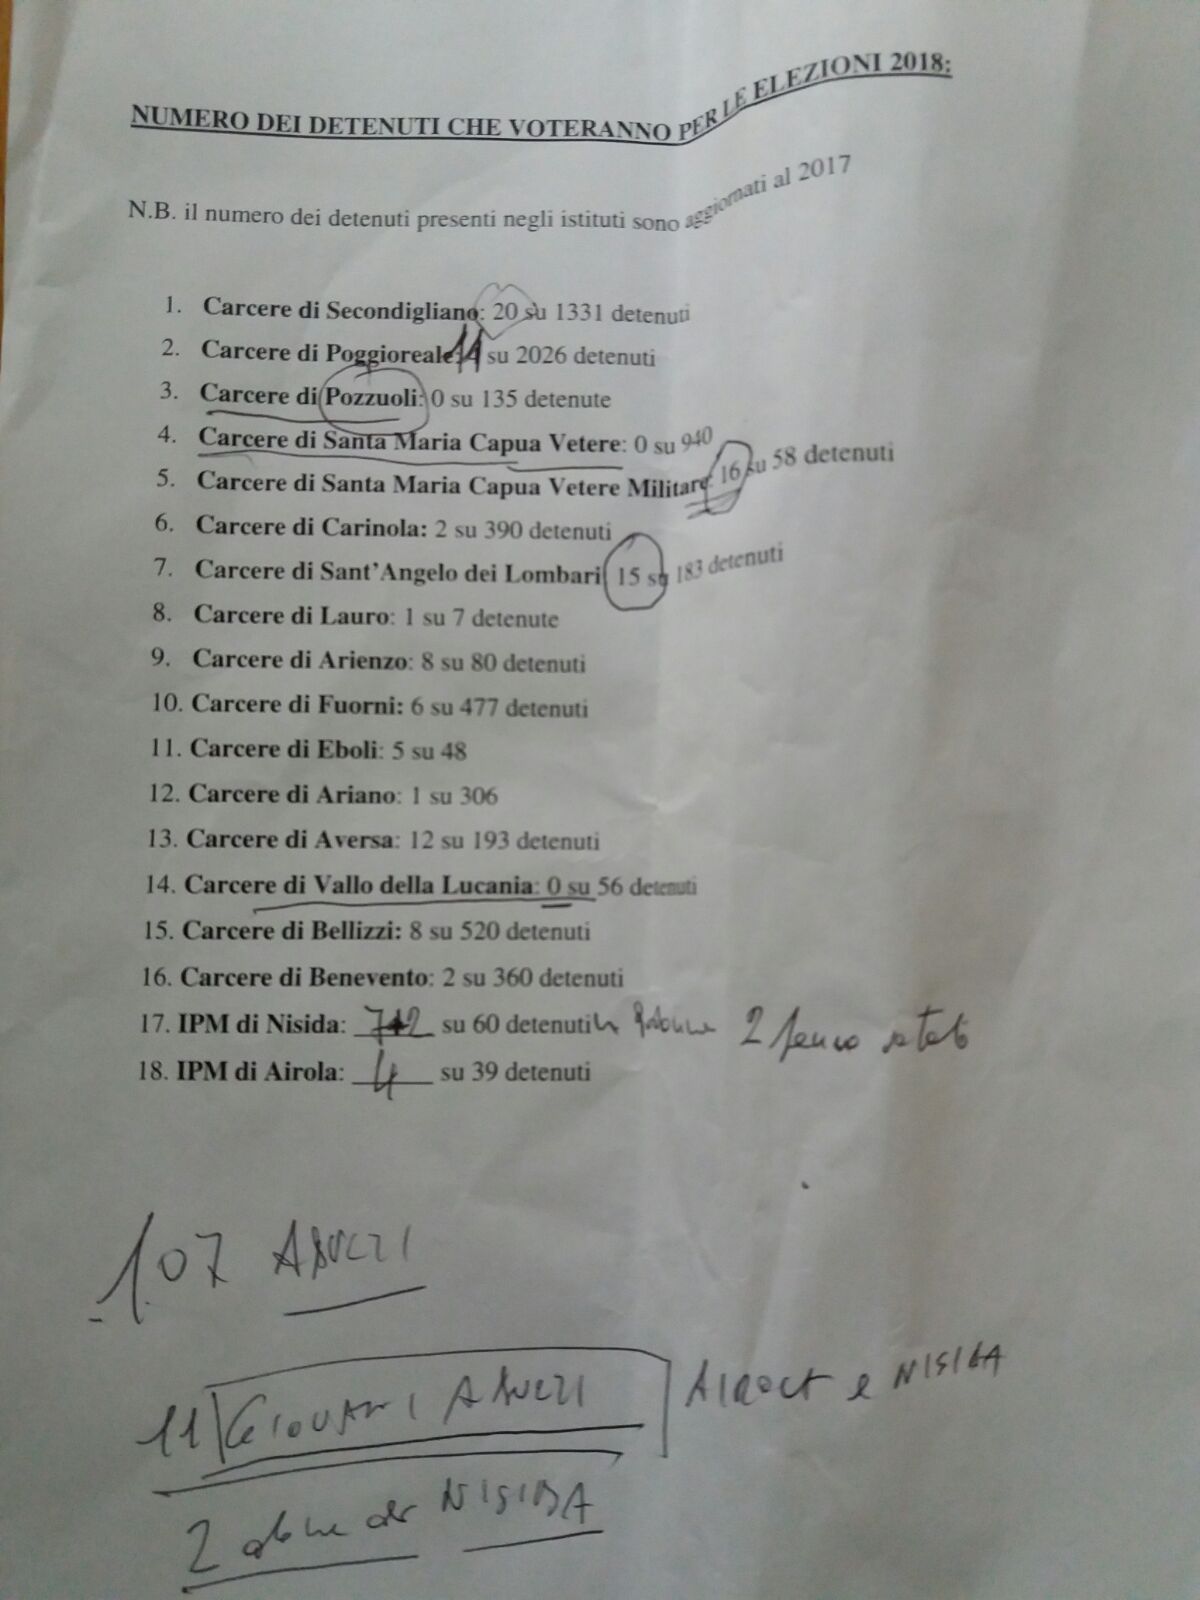 NUMERO DEI DETENUTI CHE VOTERANNO PER LE ELEZIONI 2018:
N.B. il numero dei detenuti presenti negli istituti sono aggiornati al 2017
1. Carcere di Secondigliano: 20 su 1331 detenuti
2. Carcere di Poggioreale 11 su 2026 detenuti
3. Carcere di Pozzuoli: 0 su 135 detenute
4. Carcere di Santa Maria Capua Vetere: 0 su 940
5. Carcere di Santa Maria Capua Vetere Militare: 16 su 58 detenuti
6. Carcere di Carinola: 2 su 390 detenuti
7. Carcere di Sant'Angelo dei Lombari 15 su 183 detenuti
8. Carcere di Lauro: 1 su 7 detenute
9. Carcere di Arienzo: 8 su 80 detenuti
10. Carcere di Fuorni: 6 su 477 detenuti
11. Carcere di Eboli: 5 su 48
12. Carcere di Ariano: 1 su 306
13. Carcere di Aversa: 12 su 193 detenuti
14. Carcere di Vallo della Lucania: 0 su 56 detenuti
15. Carcere di Bellizzi: 8 su 520 detenuti
16. Carcere di Benevento: 2 su 360 detenuti
17. IPM di Nisida: 7+2 su 60 detenuti 2
18. IPM di Airola: 4 su 39 detenuti
107 ADULTI
11 GIOVANI ADULTI AIROLA e NISIDA
2 NISIDA